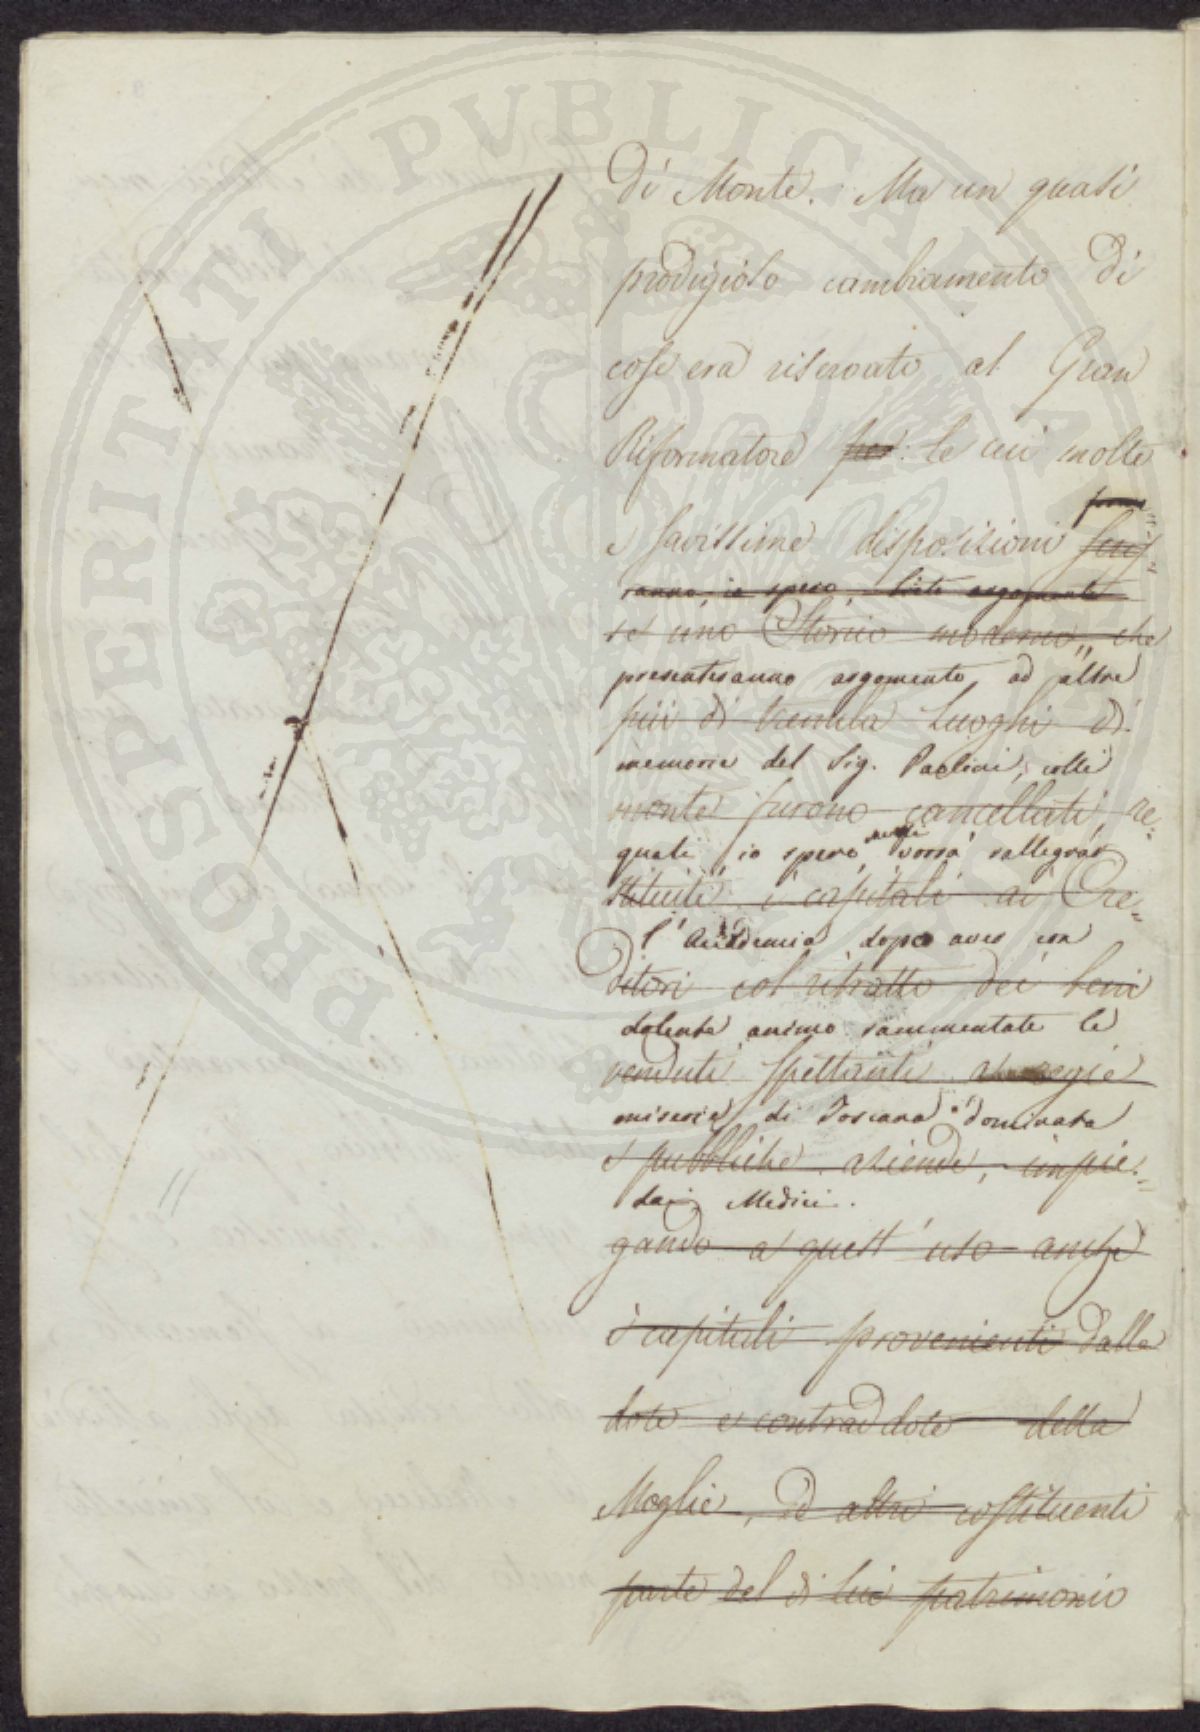 di Monte. Ma un quasi
prodigioso cambiamento di
cose era riservato al Gran
Riformatore per le cui molte
e savissime disposizioni scris=
ranno, io spero, forte argomento
se uno Storico moderno, che
presenteranno argomento ad altre
più di trentila Luoghi di
memorie del Sig. Paolini, colle
monte furono cancellati, re=
quali, io spero, vorrà rallegrar
stituiti i capitali ai Cre=
l'Accademia dopo aver con
ditori col ritratto dei beni
dolente animo rammentate le
venduti spettanti a regie
miserie di Toscana dominata
e pubbliche aziende, impie=
dai Medici.
gando a quest'uso anche
i capitali provenienti dalla
dote e contraddote della
Moglie, ed altri costituenti
parte del di lui patrimonio
PROSPERITATI PUBLICAE